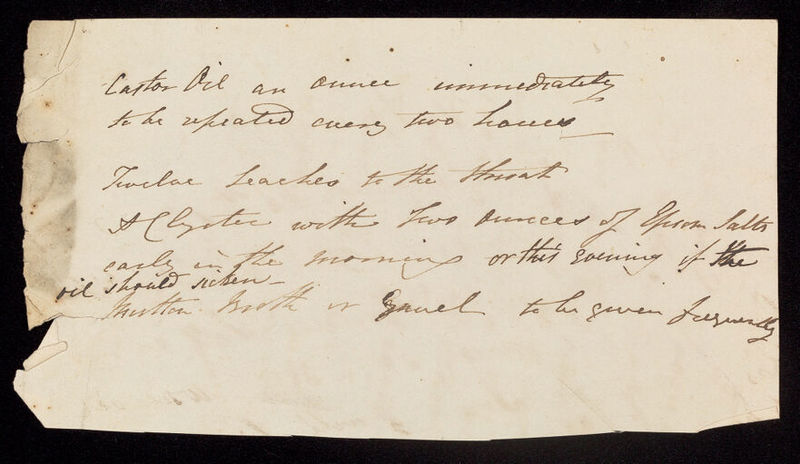 Castor Oil an ounce immediately
to be repeated every two houers
Twelve Leaches to the throat
A Clyster with two ounces of Epsom Salts
early in the morning or this evening if the
oil should sicken
Mutton Broth or Gruel to be given frequently